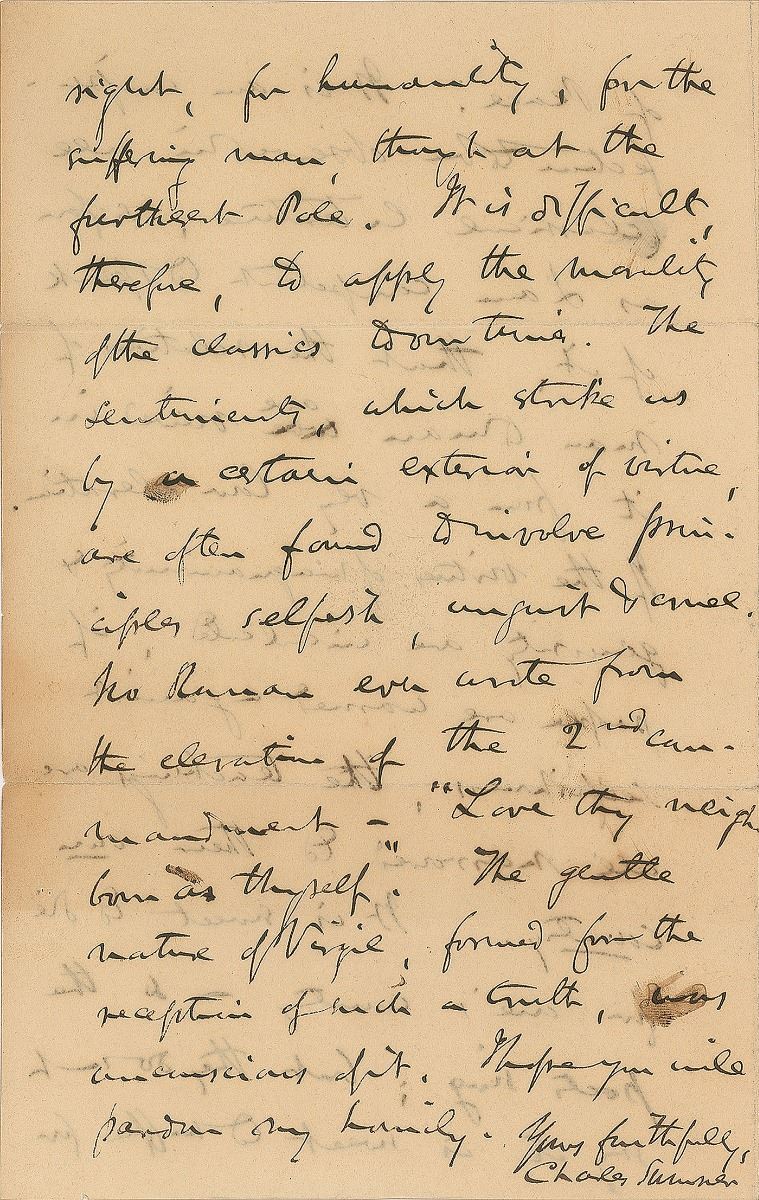 right, for humanity, for the
suffering man, though at the
furtherest Pole. It is difficult,
therefore, to apply the morality
of the classics to our times. The
sentiments, which strike us
by a certain exterior of virtue,
are often found to involve prin-
ciples selfish, unjust & cruel.
No Roman ever wrote from
the elevation of the 2nd com-
mandment – "Love thy neigh
bour as thyself". The gentle
nature of Virgil, formed for the
reception of such a truth, was
unconscious of it. I hope you will
pardon my homily. Yours faithfully,
Charles Sumner